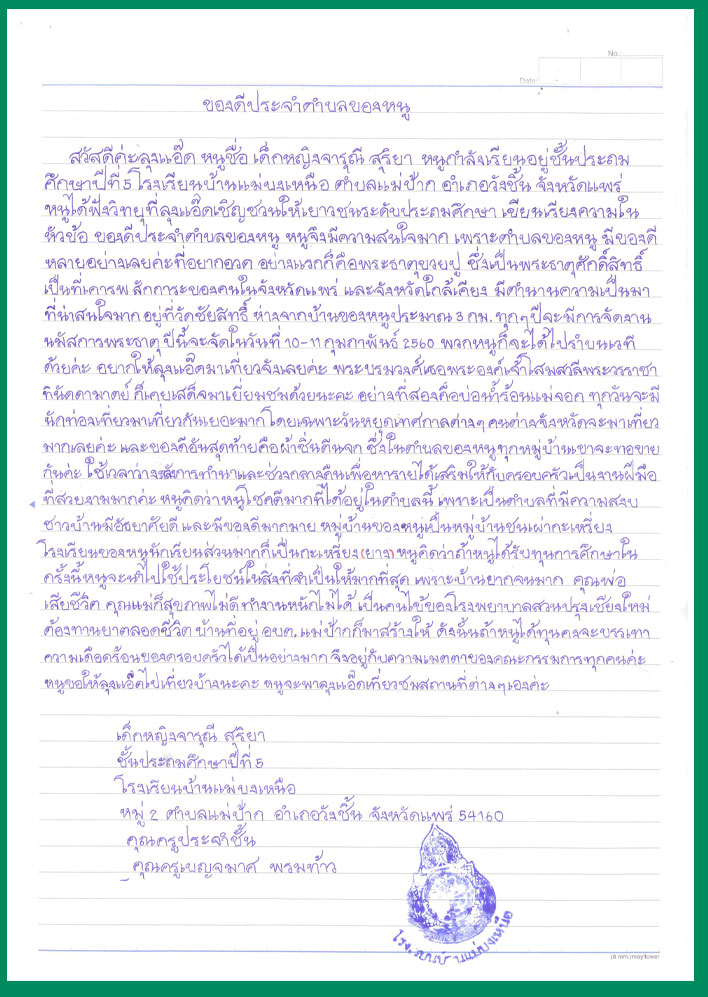 No.
Date
ของดีประจำตำบลของหนู
สวัสดีค่ะลุงแอ๊ด หนูชื่อ เด็กหญิงจารุณี สุริยา หนูกำลังเรียนอยู่ชั้นประถม
ศึกษาปีที่ 5 โรงเรียนบ้านแม่บงเหนือ ตำบลแม่ป้าก อำเภอวังชิ้น จังหวัดแพร่
หนูได้ฟังวิทยุที่ลุงแอ๊ดเชิญชวนให้เยาวชนระดับประถมศึกษา เขียนเรียงความใน
หัวข้อ ของดีประจำตำบลของหนู หนูจึงมีความสนใจมาก เพราะตำบลของหนู มีของดี
หลายอย่างเลยค่ะที่อยากอวด อย่างแรกก็คือพระธาตุขวยปู ซึ่งเป็นพระธาตุศักดิ์สิทธิ์
เป็นที่เคารพ สักการะของคนในจังหวัดแพร่ และจังหวัดใกล้เคียง มีตำนานความเป็นมา
ที่น่าสนใจมาก อยู่ที่วัดชัยสิทธิ์ ห่างจากบ้านของหนูประมาณ 3 กม. ทุกๆปีจะมีการจัดงาน
นมัสการพระธาตุ ปีนี้จะจัดในวันที่ 10-11 กุมภาพันธ์ 2560 พวกหนูก็จะได้ไปรำบนเวที
ด้วยค่ะ อยากให้ลุงแอ๊ดมาเที่ยวจังเลยค่ะ พระบรมวงศ์เธอพระองค์เจ้าโสมสวลีพระวรราชา
ทินัดดามาตย์ ก็เคยเสด็จมาเยี่ยมชมด้วยนะคะ อย่างที่สองคือบ่อน้ำร้อนแม่จอก ทุกวันจะมี
นักท่องเที่ยวมาเที่ยวกันเยอะมากโดยเฉพาะวันหยุดเทศกาลต่างๆ คนต่างจังหวัดจะมาเที่ยว
มากเลยค่ะ และของดีอันสุดท้ายคือผ้าซิ่นตีนจก ซึ่งในตำบลของหนูทุกหมู่บ้านเขาจะทอขาย
กันค่ะ ใช้เวลาว่างหลังการทำนาและช่วงกลางคืนเพื่อหารายได้เสริมให้กับครอบครัวเป็นงานฝีมือ
ที่สวยงามมากค่ะ หนูคิดว่าหนูโชคดีมากที่ได้อยู่ในตำบลนี้ เพราะเป็นตำบลที่มีความสงบ
ชาวบ้านมีอัธยาศัยดี และมีของดีมากมาย หมู่บ้านของหนูเป็นหมู่บ้านชนเผ่ากะเหรี่ยง
โรงเรียนของหนูนักเรียนส่วนมากก็เป็นกะเหรี่ยง (ยาง) หนูคิดว่าถ้าหนูได้รับทุนการศึกษาใน
ครั้งนี้ หนูจะนำไปใช้ประโยชน์ในสิ่งที่จำเป็นให้มากที่สุด เพราะบ้านยากจนมาก คุณพ่อ
เสียชีวิต คุณแม่ก็สุขภาพไม่ดี ทำงานหนักไม่ได้ เป็นคนไข้ของโรงพยาบาลสวนปรุงเชียงใหม่
ต้องทานยาตลอดชีวิต บ้านที่อยู่ อบต.แม่ป้ากก็มาสร้างให้ ดังนั้นถ้าหนูได้ทุนคงจะบรรเทา
ความเดือดร้อนของครอบครัวได้เป็นอย่างมาก จึงอยู่กับความเมตตาของคณะกรรมการทุกคนค่ะ
หนูขอให้ลุงแอ๊ดไปเที่ยวบ้างนะคะ หนูจะพาลุงแอ๊ดเที่ยวชมสถานที่ต่างๆเองค่ะ
เด็กหญิงจารุณี สุริยา
ชั้นประถมศึกษาปีที่ 5
โรงเรียนบ้านแม่บงเหนือ
หมู่ 2 ตำบลแม่ป้าก อำเภอวังชิ้น จังหวัดแพร่ 54160
คุณครูประจำชั้น
คุณครูเบญจมาศ พรมท้าว
โรงเรียนบ้านแม่บงเหนือ
(8 mm.) mayflower